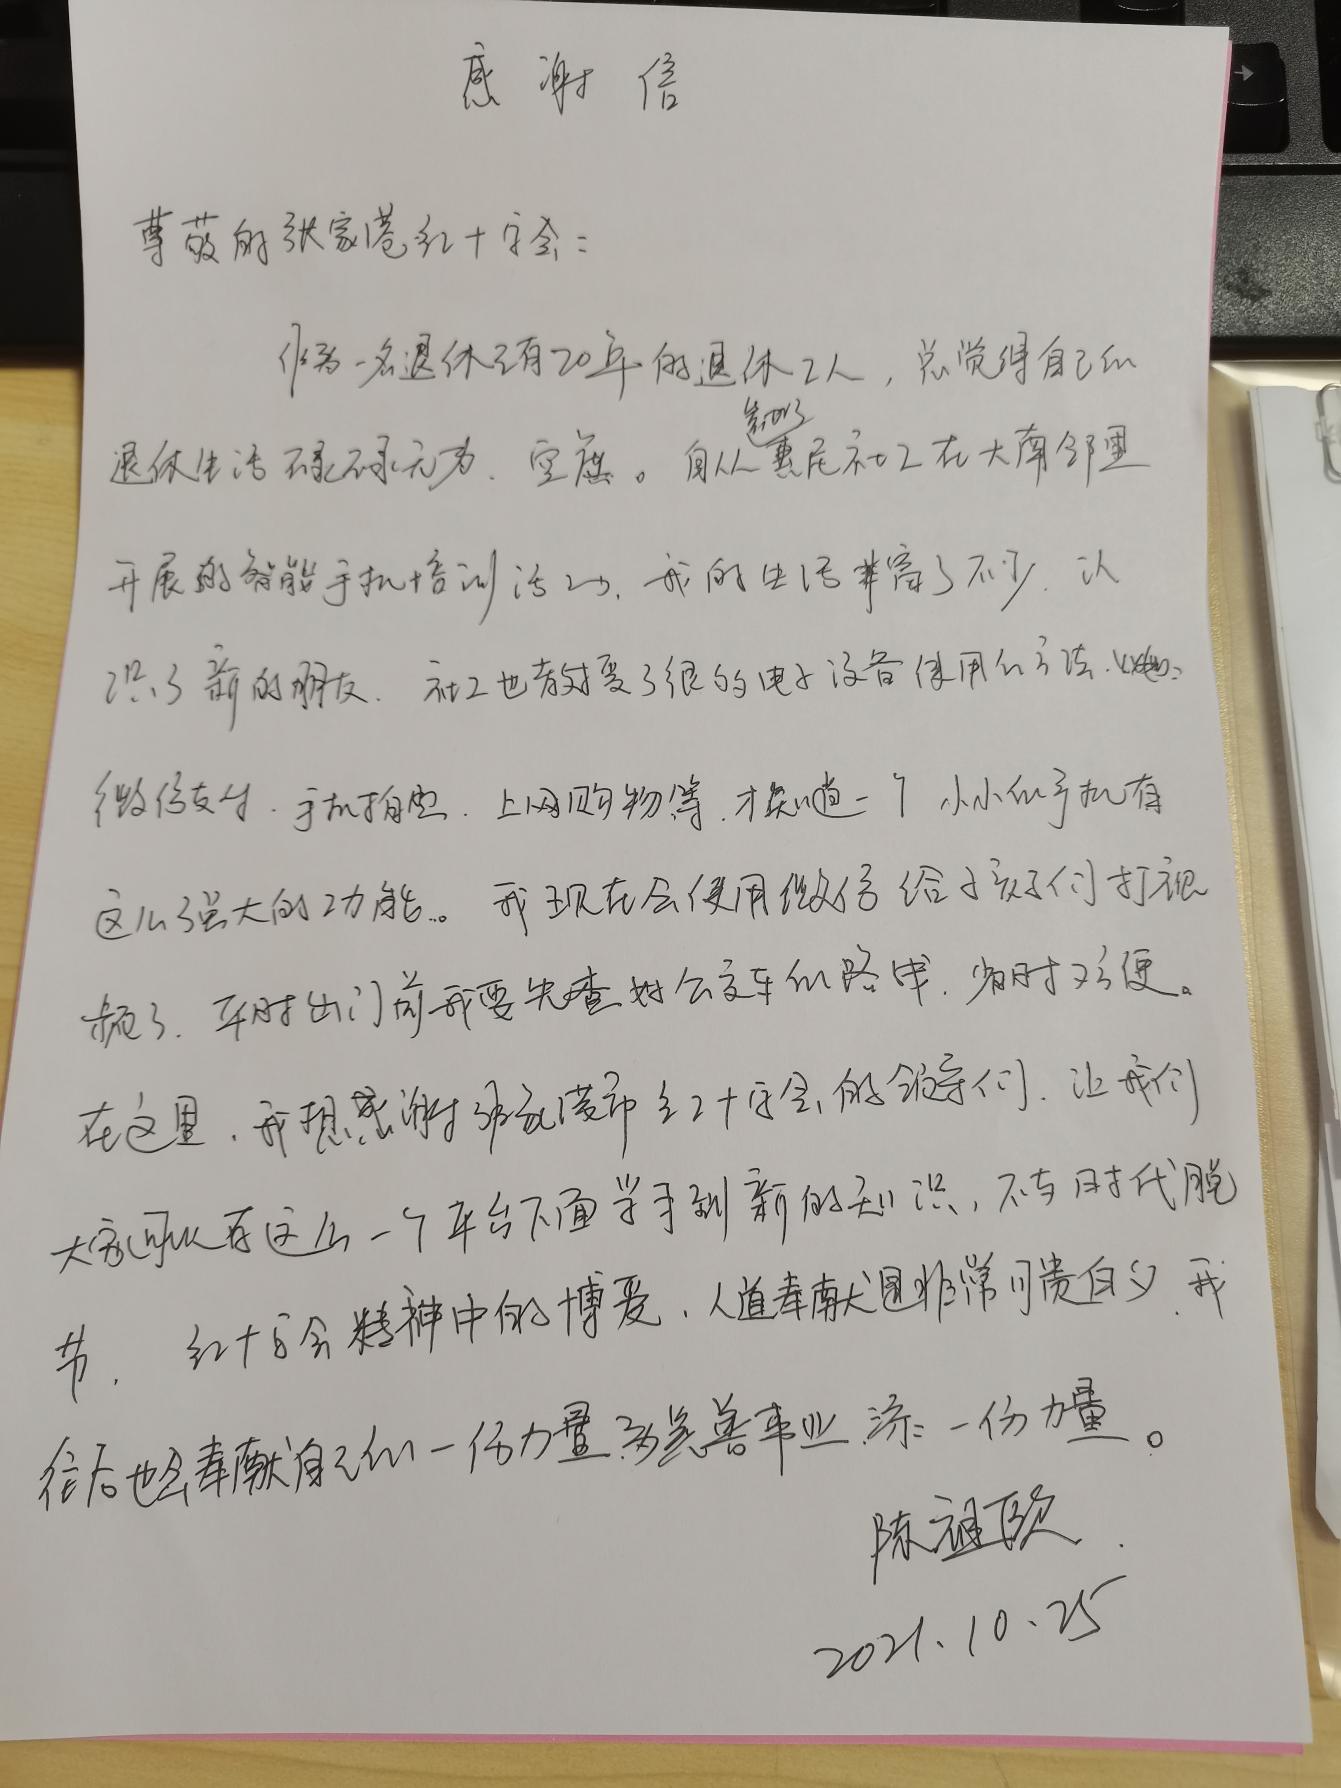 感谢信
尊敬的张家港红十字会：
作为一名退休已有20年的退休工人，总觉得自己的
退休生活碌碌无为、空虚。自从参加了惠民社工在大南邻里
开展的智能手机培训活动，我的生活丰富了不少，认
识了新的朋友，社工也教授了很的电子设备使用的方法，
微信支付、手机拍照、上网购物等，才知道一个小小的手机有
这么强大的功能。我现在会使用微信给子孩子们打视
频了，平时出门前我要先查好公交车的路线，省时又方便。
在这里，我想感谢张家港市红十字会的领导们，让我们
大家可以在这么一个平台下面学习到新的知识，不与时代脱
节，红十字会精神中的博爱、人道奉献是非常可贵的，我
往后也会奉献自己的一份力量为慈善事业添一份力量。
陈祖
2021.10.25